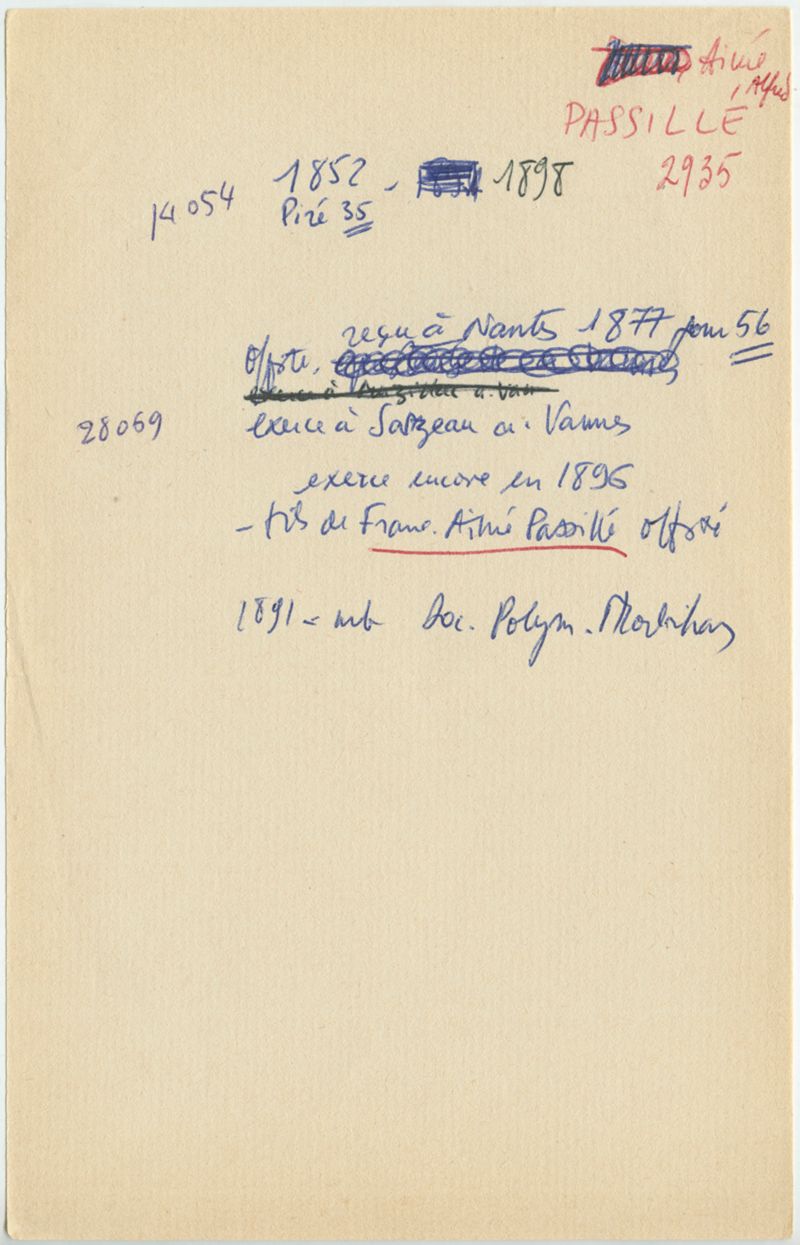 Aimé
Alfred
PASSILLÉ
2935
1852 - 1898
14054
Piré 35
reçu à Nantes 1877 pour 56
Offste.
exerce à Muzillac a. Van
28069
exerce à Sarzeau a. Vannes
exerce encore en 1896
- fils de Franc. Aimé Passillé offsté
1891 - mb Soc. Polym. Morbihan